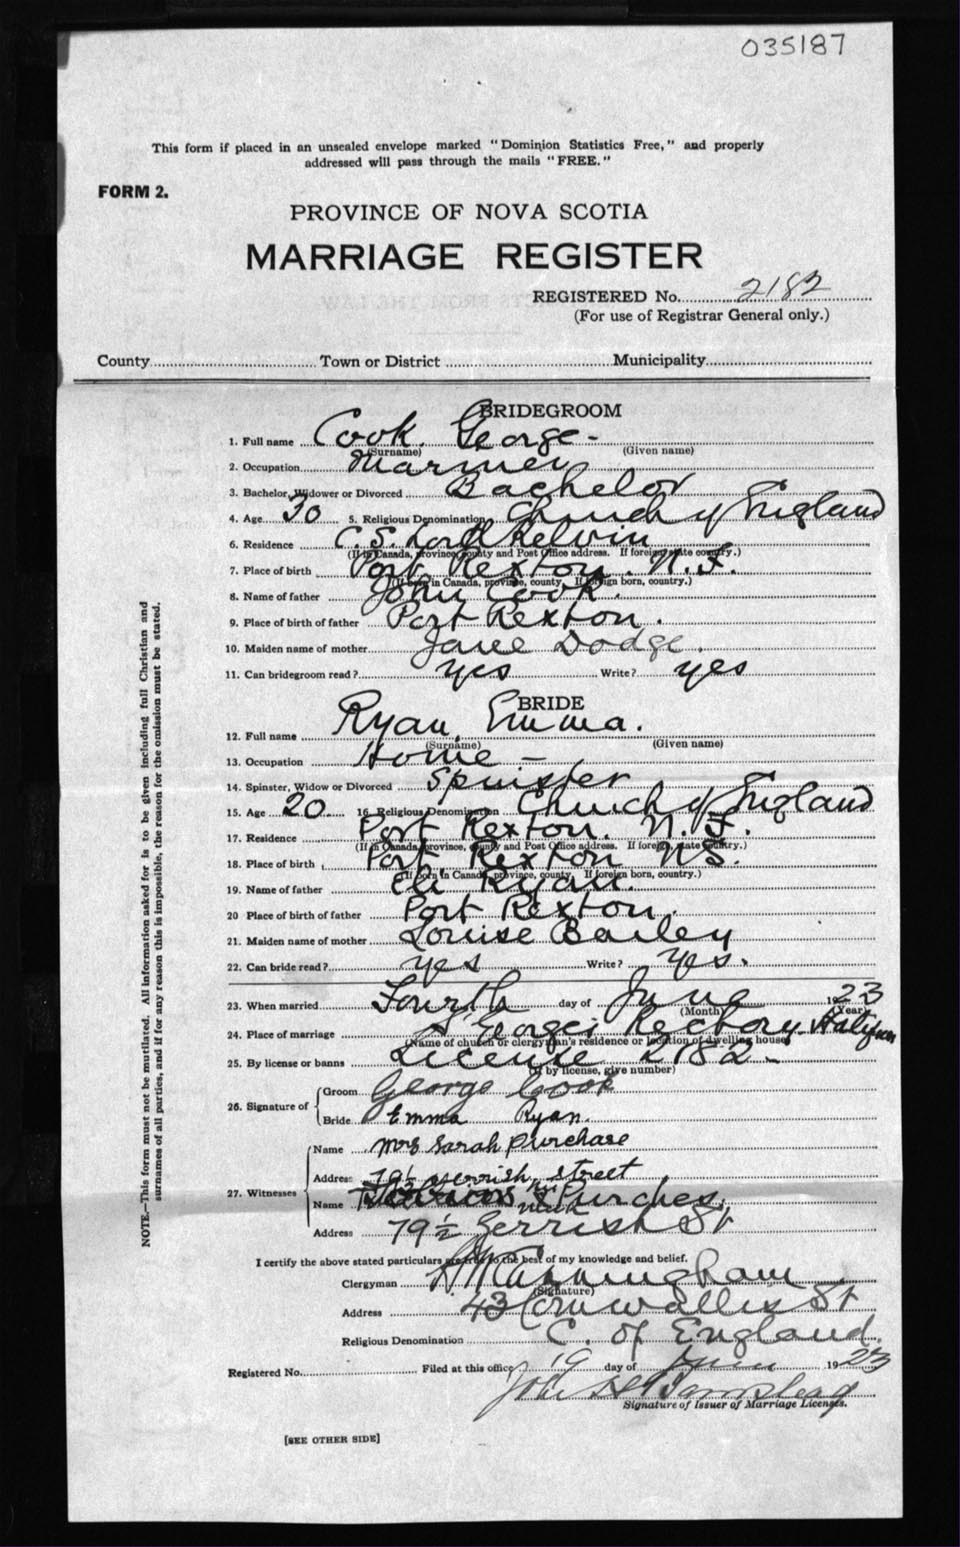 035187
This form if placed in an unsealed envelope marked "Dominion Statistics Free," and properly
addressed will pass through the mails "FREE."
FORM 2.
PROVINCE OF NOVA SCOTIA
MARRIAGE REGISTER
REGISTERED No. 2182
(For use of Registrar General only.)
County Town or District Municipality
BRIDEGROOM
1. Full name Cook. George -
(Surname) (Given name)
2. Occupation Mariner
3. Bachelor, Widower or Divorced Bachelor
4. Age 30 5. Religious Denomination Church of England
6. Residence C.S. Lord Kelvin
(If in Canada, province, county and Post Office address. If foreign, state country.)
7. Place of birth Port Rexton. N.F.
(If born in Canada, province, county. If foreign born, country.)
8. Name of father John Cook.
9. Place of birth of father Port Rexton.
10. Maiden name of mother Jane Dodge.
11. Can bridegroom read? yes Write? yes
BRIDE
12. Full name Ryan, Emma.
(Surname) (Given name)
13. Occupation Home -
14. Spinster, Widow or Divorced Spinster
15. Age 20. 16. Religious Denomination Church of England
17. Residence Port Rexton. N.F.
(If in Canada, province, county and Post Office address. If foreign, state country.)
18. Place of birth Port Rexton NS.
(If born in Canada, province, county. If foreign born, country.)
19. Name of father Eli Ryan.
20 Place of birth of father Port Rexton.
21. Maiden name of mother Louise Bailey
22. Can bride read? yes Write? yes.
23. When married Fourth day of June 1923
(Month) (Year)
24. Place of marriage St Georges Rectory. Halifax
(Name of church or clergyman's residence or location of dwelling house)
25. By license or banns License 2182 -
(If by license, give number)
26. Signature of Groom George Cook
Bride Emma Ryan.
27. Witnesses Name Mrs Sarah Purchase
Address 79½ Gerrish Street
Name Purches
Address 79½ Gerrish St
I certify the above stated particulars are true to the best of my knowledge and belief.
Clergyman Cunningham
(Signature)
Address 43 Cornwallis St
Religious Denomination C. of England.
Registered No. Filed at this office 19 day of June 1923
John
Signature of Issuer of Marriage Licenses.
[SEE OTHER SIDE]
NOTE.—This form must not be mutilated. All information asked for is to be given including full Christian and
surnames of all parties, and if for any reason this is impossible, the reason for the omission must be stated.